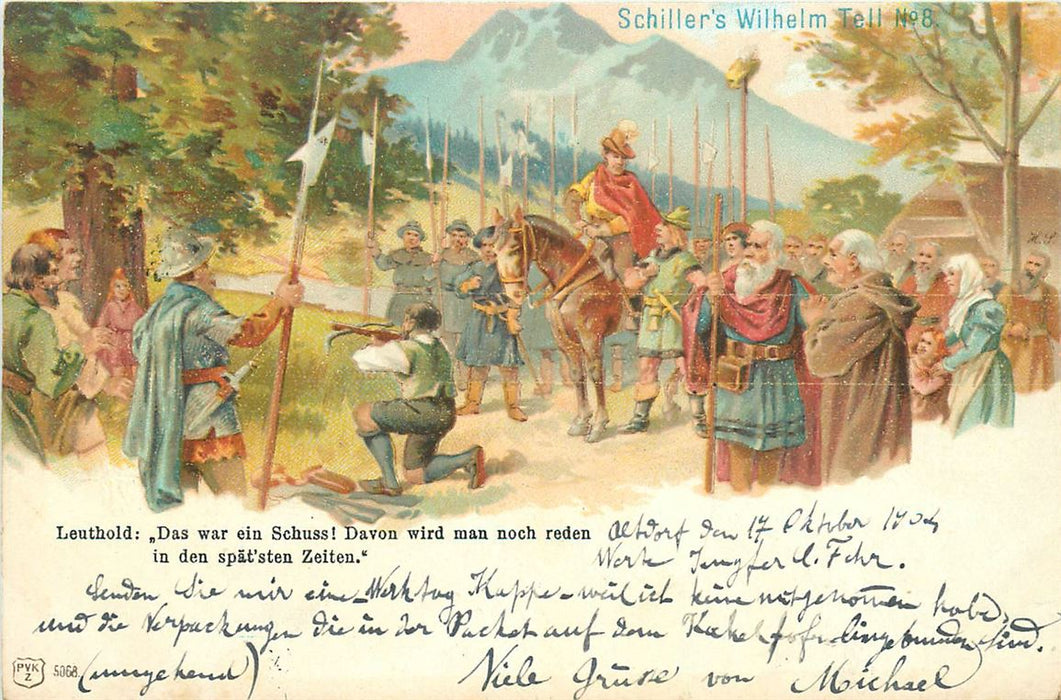 Schiller's Wilhelm Tell No 8.
H.S.
Leuthold: „Das war ein Schuss! Davon wird man noch reden
in den spät'sten Zeiten.“
Altdorf den 17 Oktober 1904
Werte Jungfer L. Fehr.
Senden Sie mir eine Werktag Kappe – weil ich keine mitgenommen habe,
und die Verpackungen die in der Packet auf dem eingebunden sind.
(umgehend)
Viele Grüsse von Michael
PVK
Z
5068.